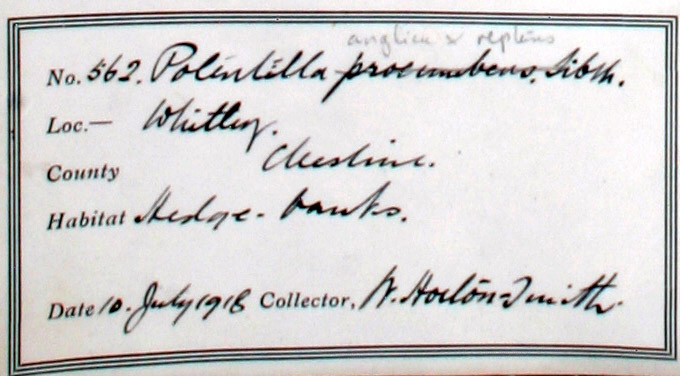 anglica x reptans
No. 562. Potentilla procumbens, Sibth.
Loc.— Whitley.
County Cheshire.
Habitat Hedge-banks.
Date 10. July 1918 Collector, W. Horton-Smith.